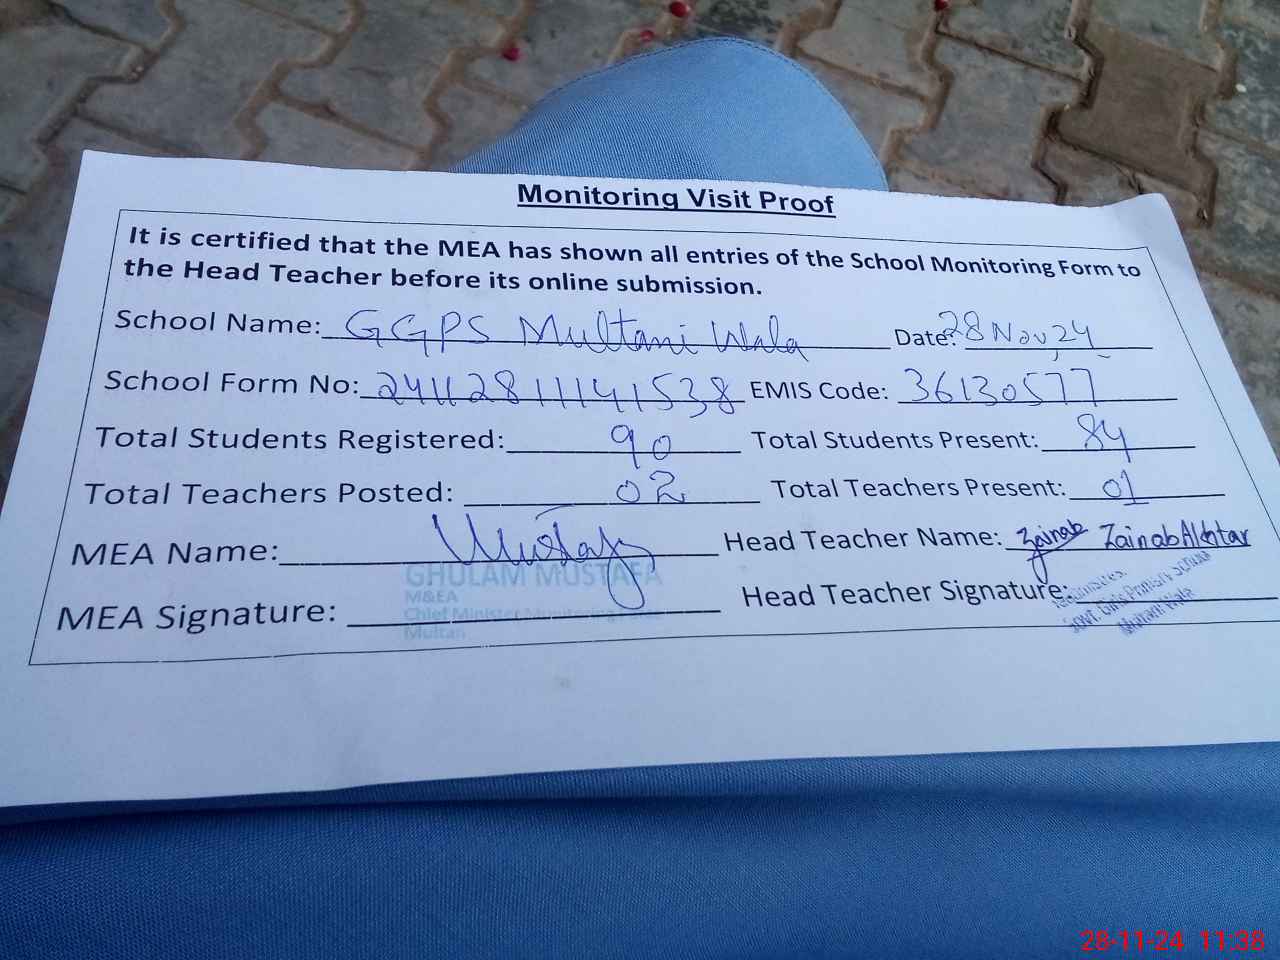 Monitoring Visit Proof
It is certified that the MEA has shown all entries of the School Monitoring Form to
the Head Teacher before its online submission.
School Name: GGPS Multani Wala Date: 28 Nov, 24
School Form No: 24112811141538 EMIS Code: 36130577
Total Students Registered: 90 Total Students Present: 84
Total Teachers Posted: 02 Total Teachers Present: 01
MEA Name: Mustafa Head Teacher Name: Zainab Zainab Akhtar
GHULAM MUSTAFA
M&EA
Chief Minister Monitoring Force
Multan
MEA Signature: Head Teacher Signature:
Govt. Girls Primary School
Multani Wala
28-11-24 11:38